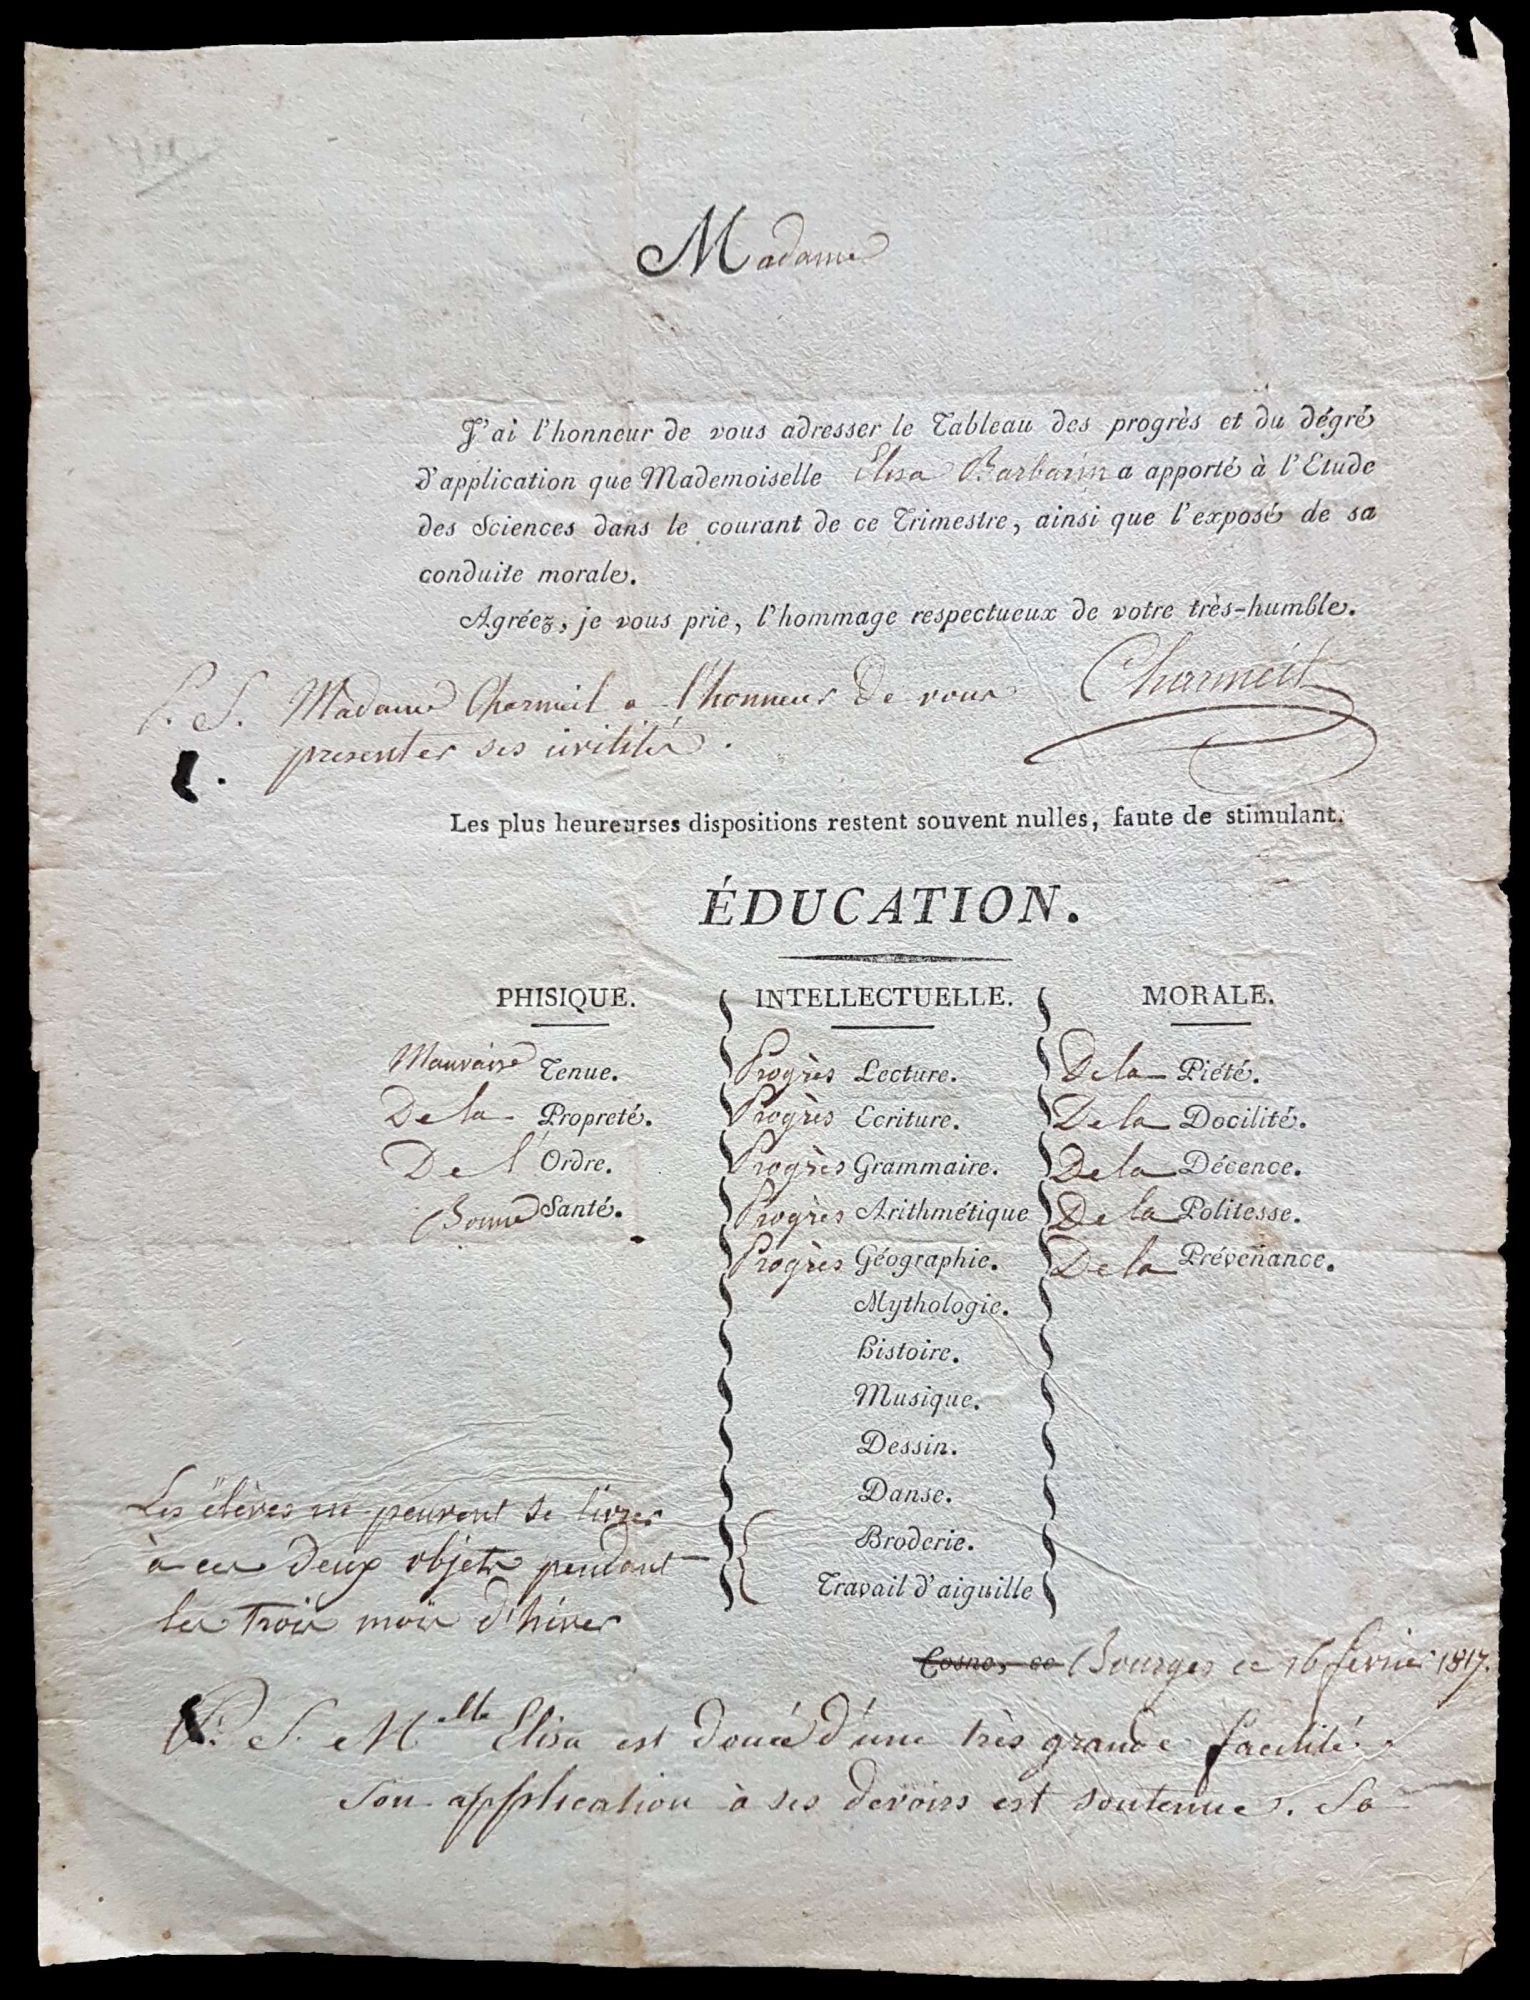 Madame
J'ai l'honneur de vous adresser le Tableau des progrès et du dégré
d'application que Mademoiselle Elisa Barbarin a apporté à l'Etude
des Sciences dans le courant de ce Trimestre, ainsi que l'exposé de sa
conduite morale.
Agréez, je vous prie, l'hommage respectueux de votre très-humble.
Charmeil
P. S. Madame Charmeil a l'honneur de vous
presenter ses civilités.
Les plus heureurses dispositions restent souvent nulles, faute de stimulant.
ÉDUCATION.
PHISIQUE. INTELLECTUELLE. MORALE.
Mauvaise Tenue. Progrès Lecture. De la Piété.
De la Propreté. Progrès Ecriture. De la Docilité.
De l' Ordre. Progrès Grammaire. De la Décence.
Bonne Santé. Progrès Arithmétique De la Politesse.
Progrès Géographie. De la Prévenance.
Mythologie.
Histoire.
Musique.
Dessin.
Danse.
Broderie.
Travail d'aiguille
Les élèves ne peuvent se livrer
à ces deux objets pendant
les trois mois d'hiver
Cosne, ce Bourges ce 16 fevrier 1817.
P. S. Mlle Elisa est douée d'une très grande facilité.
Son application à ses devoirs est soutenue. Sa